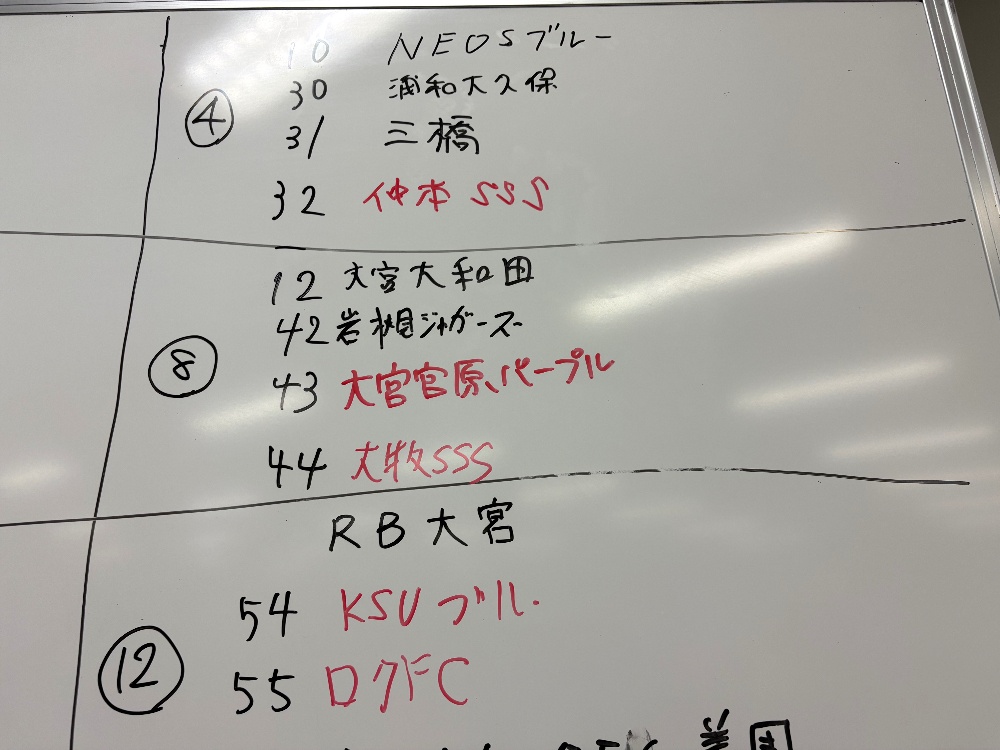 10 NEOSブルー
④
30 浦和大久保
31 三橋
32 仲本SSS
12 大宮大和田
42 岩槻ジャガーズ
⑧
43 大宮官原パープル
44 大牧SSS
RB大宮
54 KSUブルー
⑫
55 ロクFC